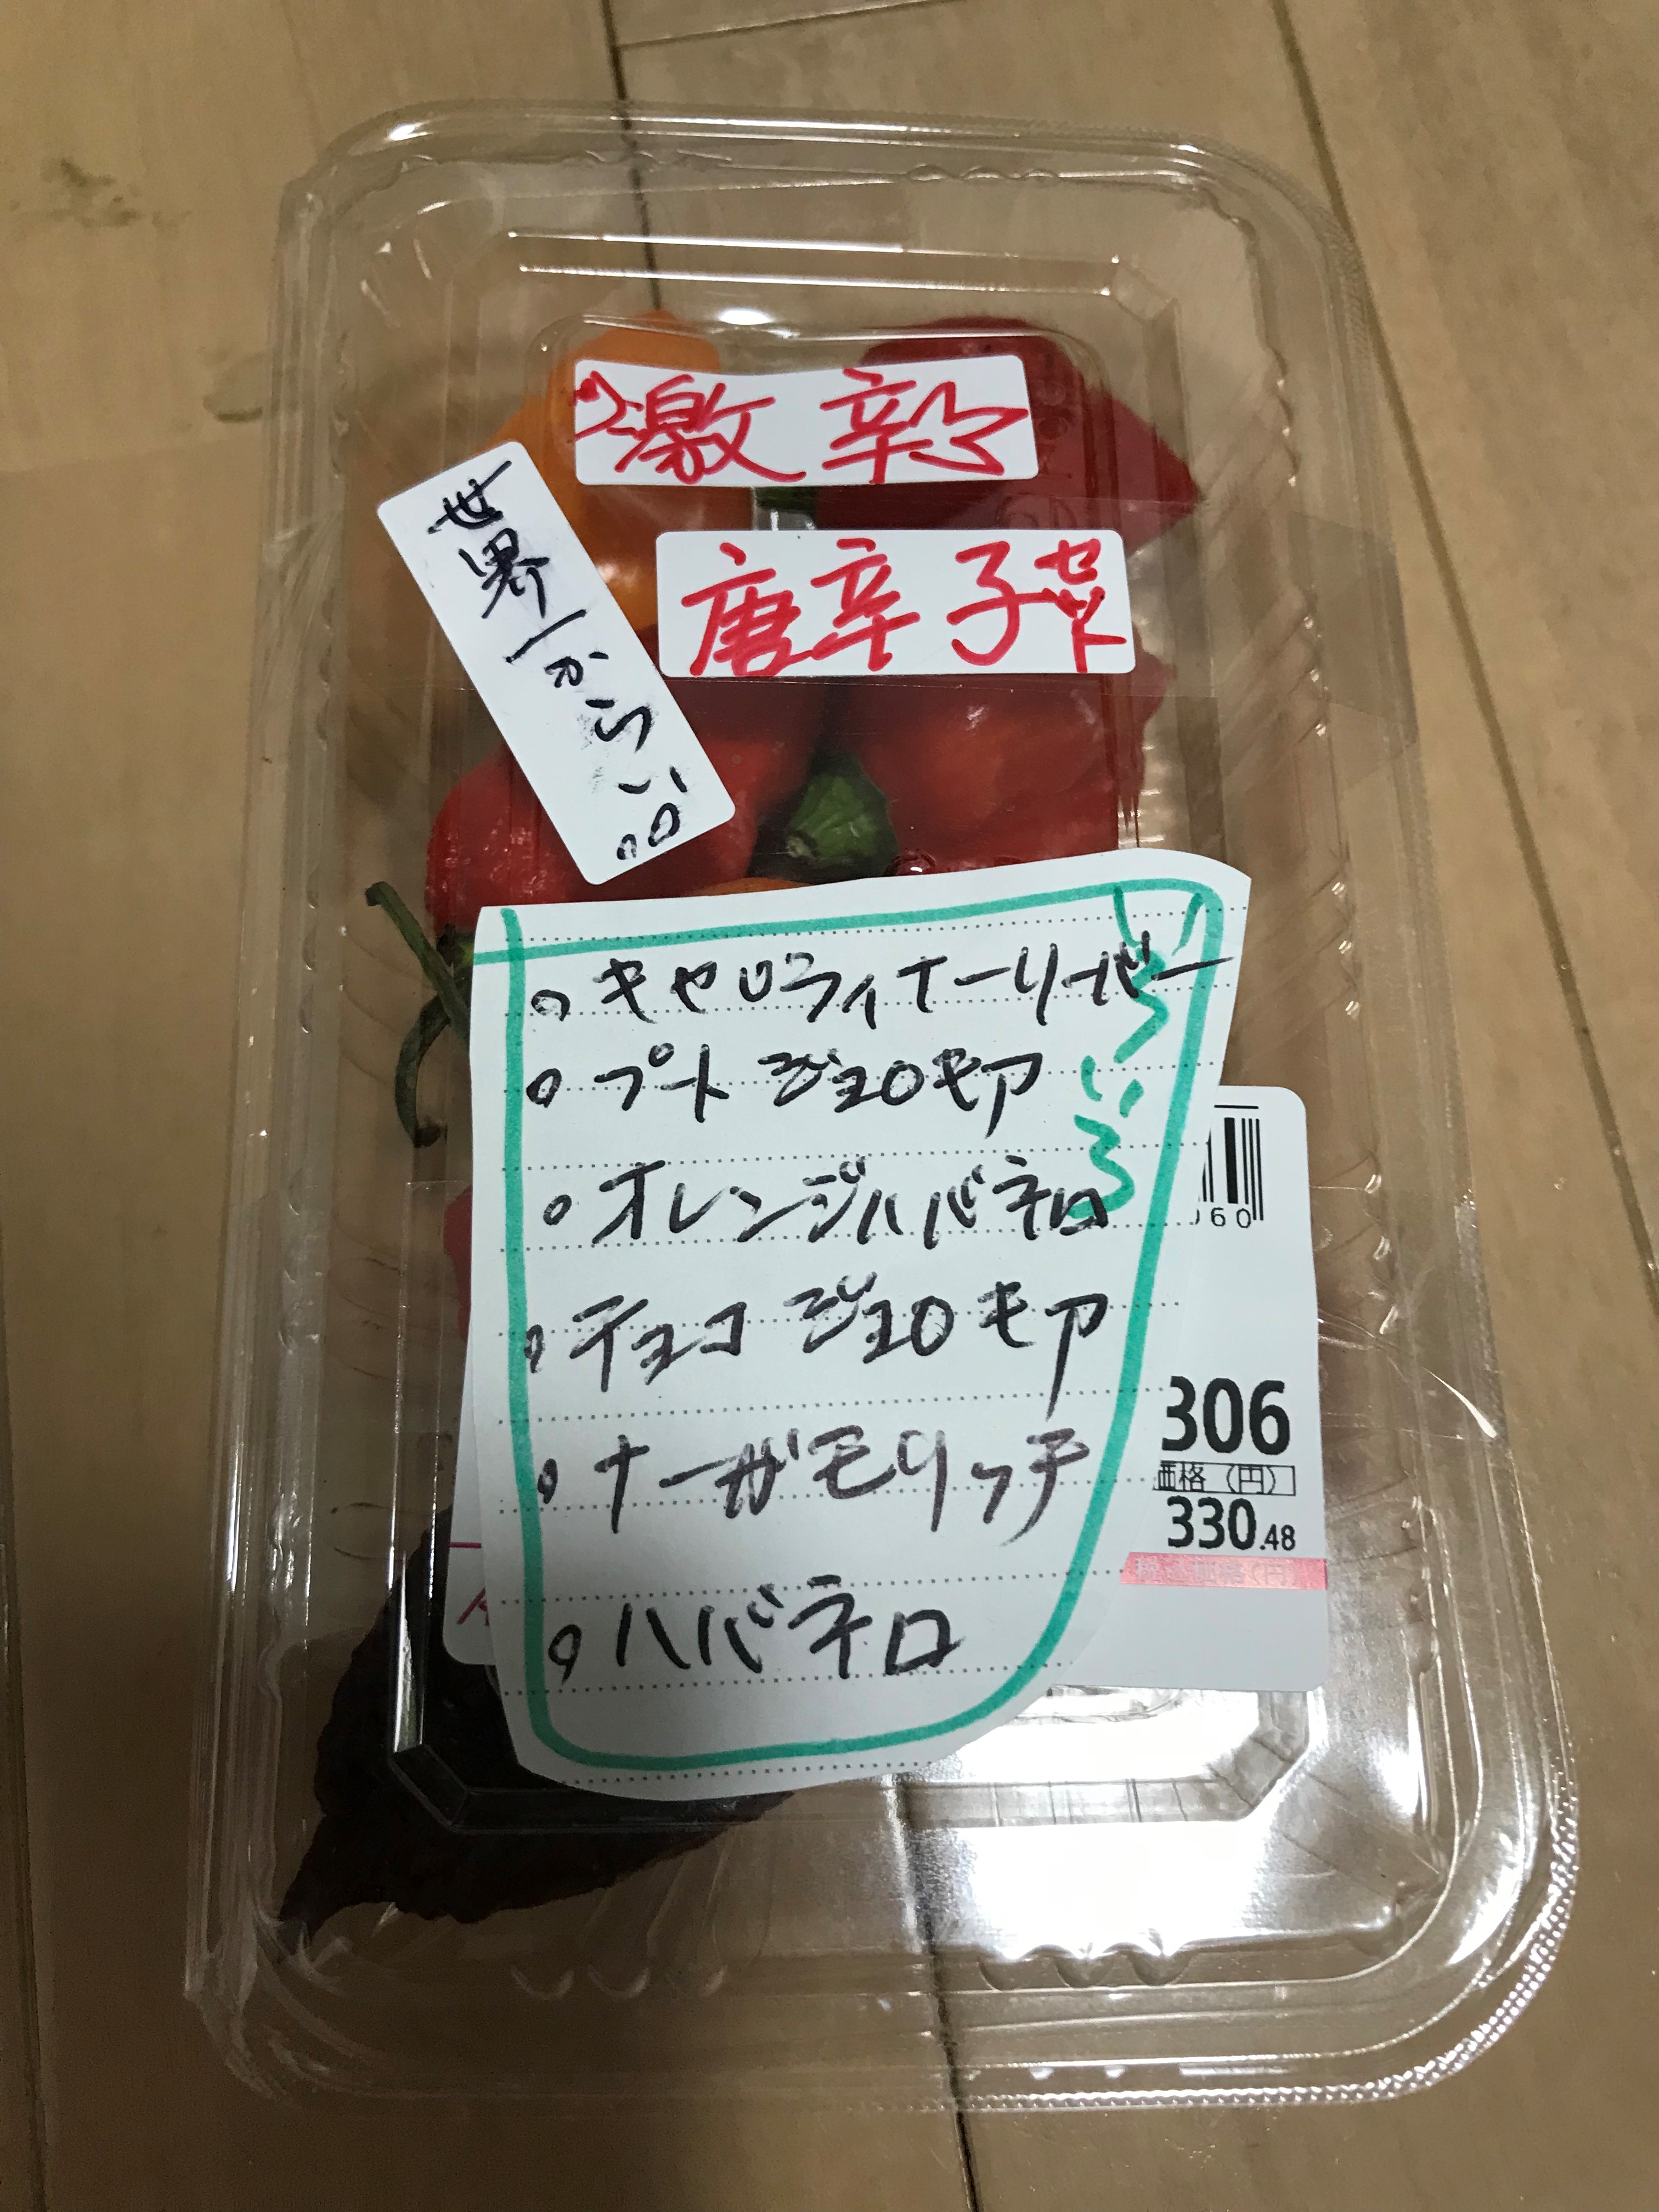 激辛
唐辛子セット
世界一からい。。
いろいろ
。キャロライナーリーパー
。プートジョロキア
。オレンジハバネロ
。チョコジョロキア
。ナーガモリッチ
。ハバネロ
060
306
価格(円)
330.48
税込価格(円)